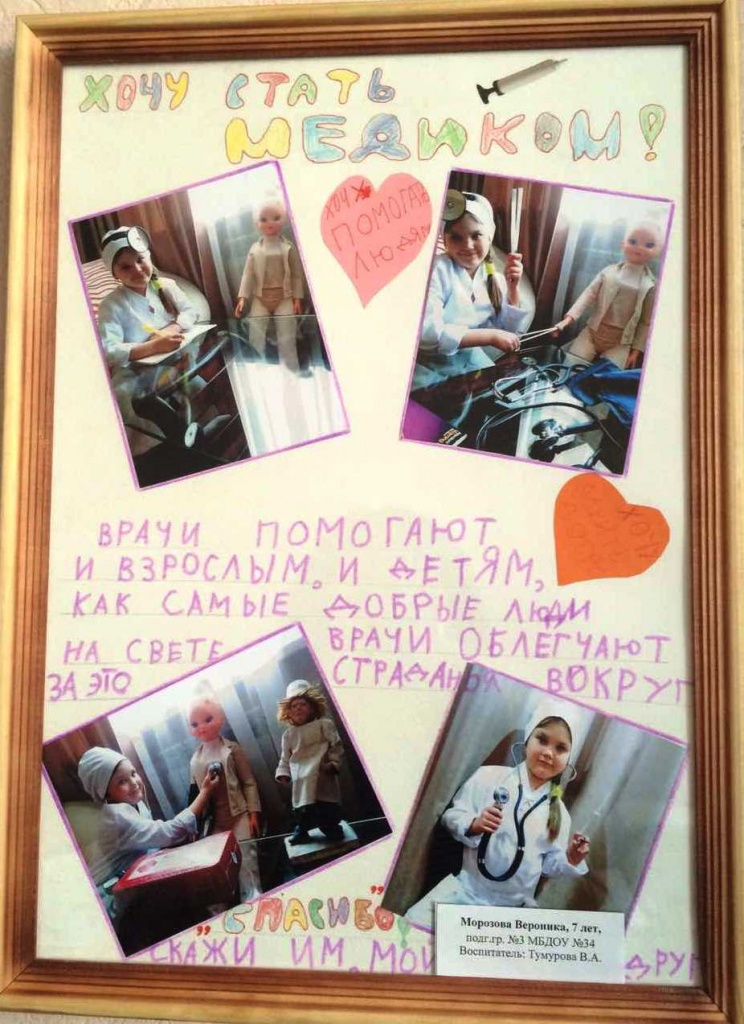 ХОЧУ СТАТЬ
МЕДИКОМ!
ХОЧУ
ПОМОГАТЬ
ЛЮДЯМ
ВРАЧИ ПОМОГАЮТ
И ВЗРОСЛЫМ, И ДЕТЯМ,
КАК САМЫЕ ДОБРЫЕ ЛЮДИ
НА СВЕТЕ. ВРАЧИ ОБЛЕГЧАЮТ
ЗА ЭТО СТРАДАНЬЯ ВОКРУГ
„СПАСИБО”
СКАЖИ ИМ, МОЙ ДРУГ
Морозова Вероника, 7 лет,
подг.гр. №3 МБДОУ №34
Воспитатель: Тумурова В.А.